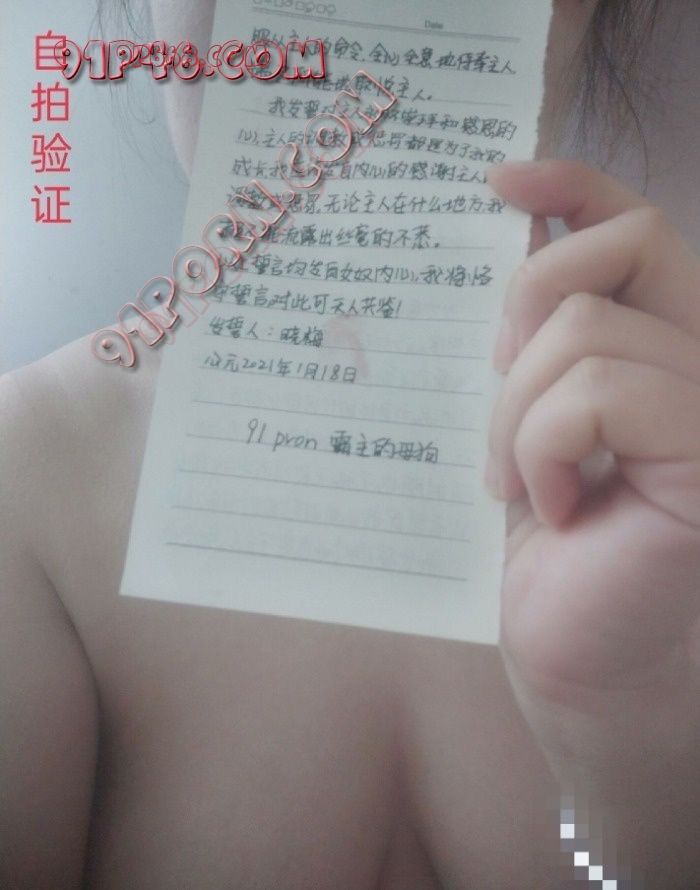 自拍验证
91P46.COM
91PORN.COM
Date
服从主人的命令,全心全意地侍奉主人
主人。
我发誓对主人
心,主人的都是为了我的
成长我是发自内心的感谢主人
无论主人在什么地方,我
流露出丝毫的不悉。
誓言均发自女奴内心,我将恪
守誓言,对此可天人共鉴!
发誓人:晓梅
公元2021年1月18日
91 pron 霸主的母狗